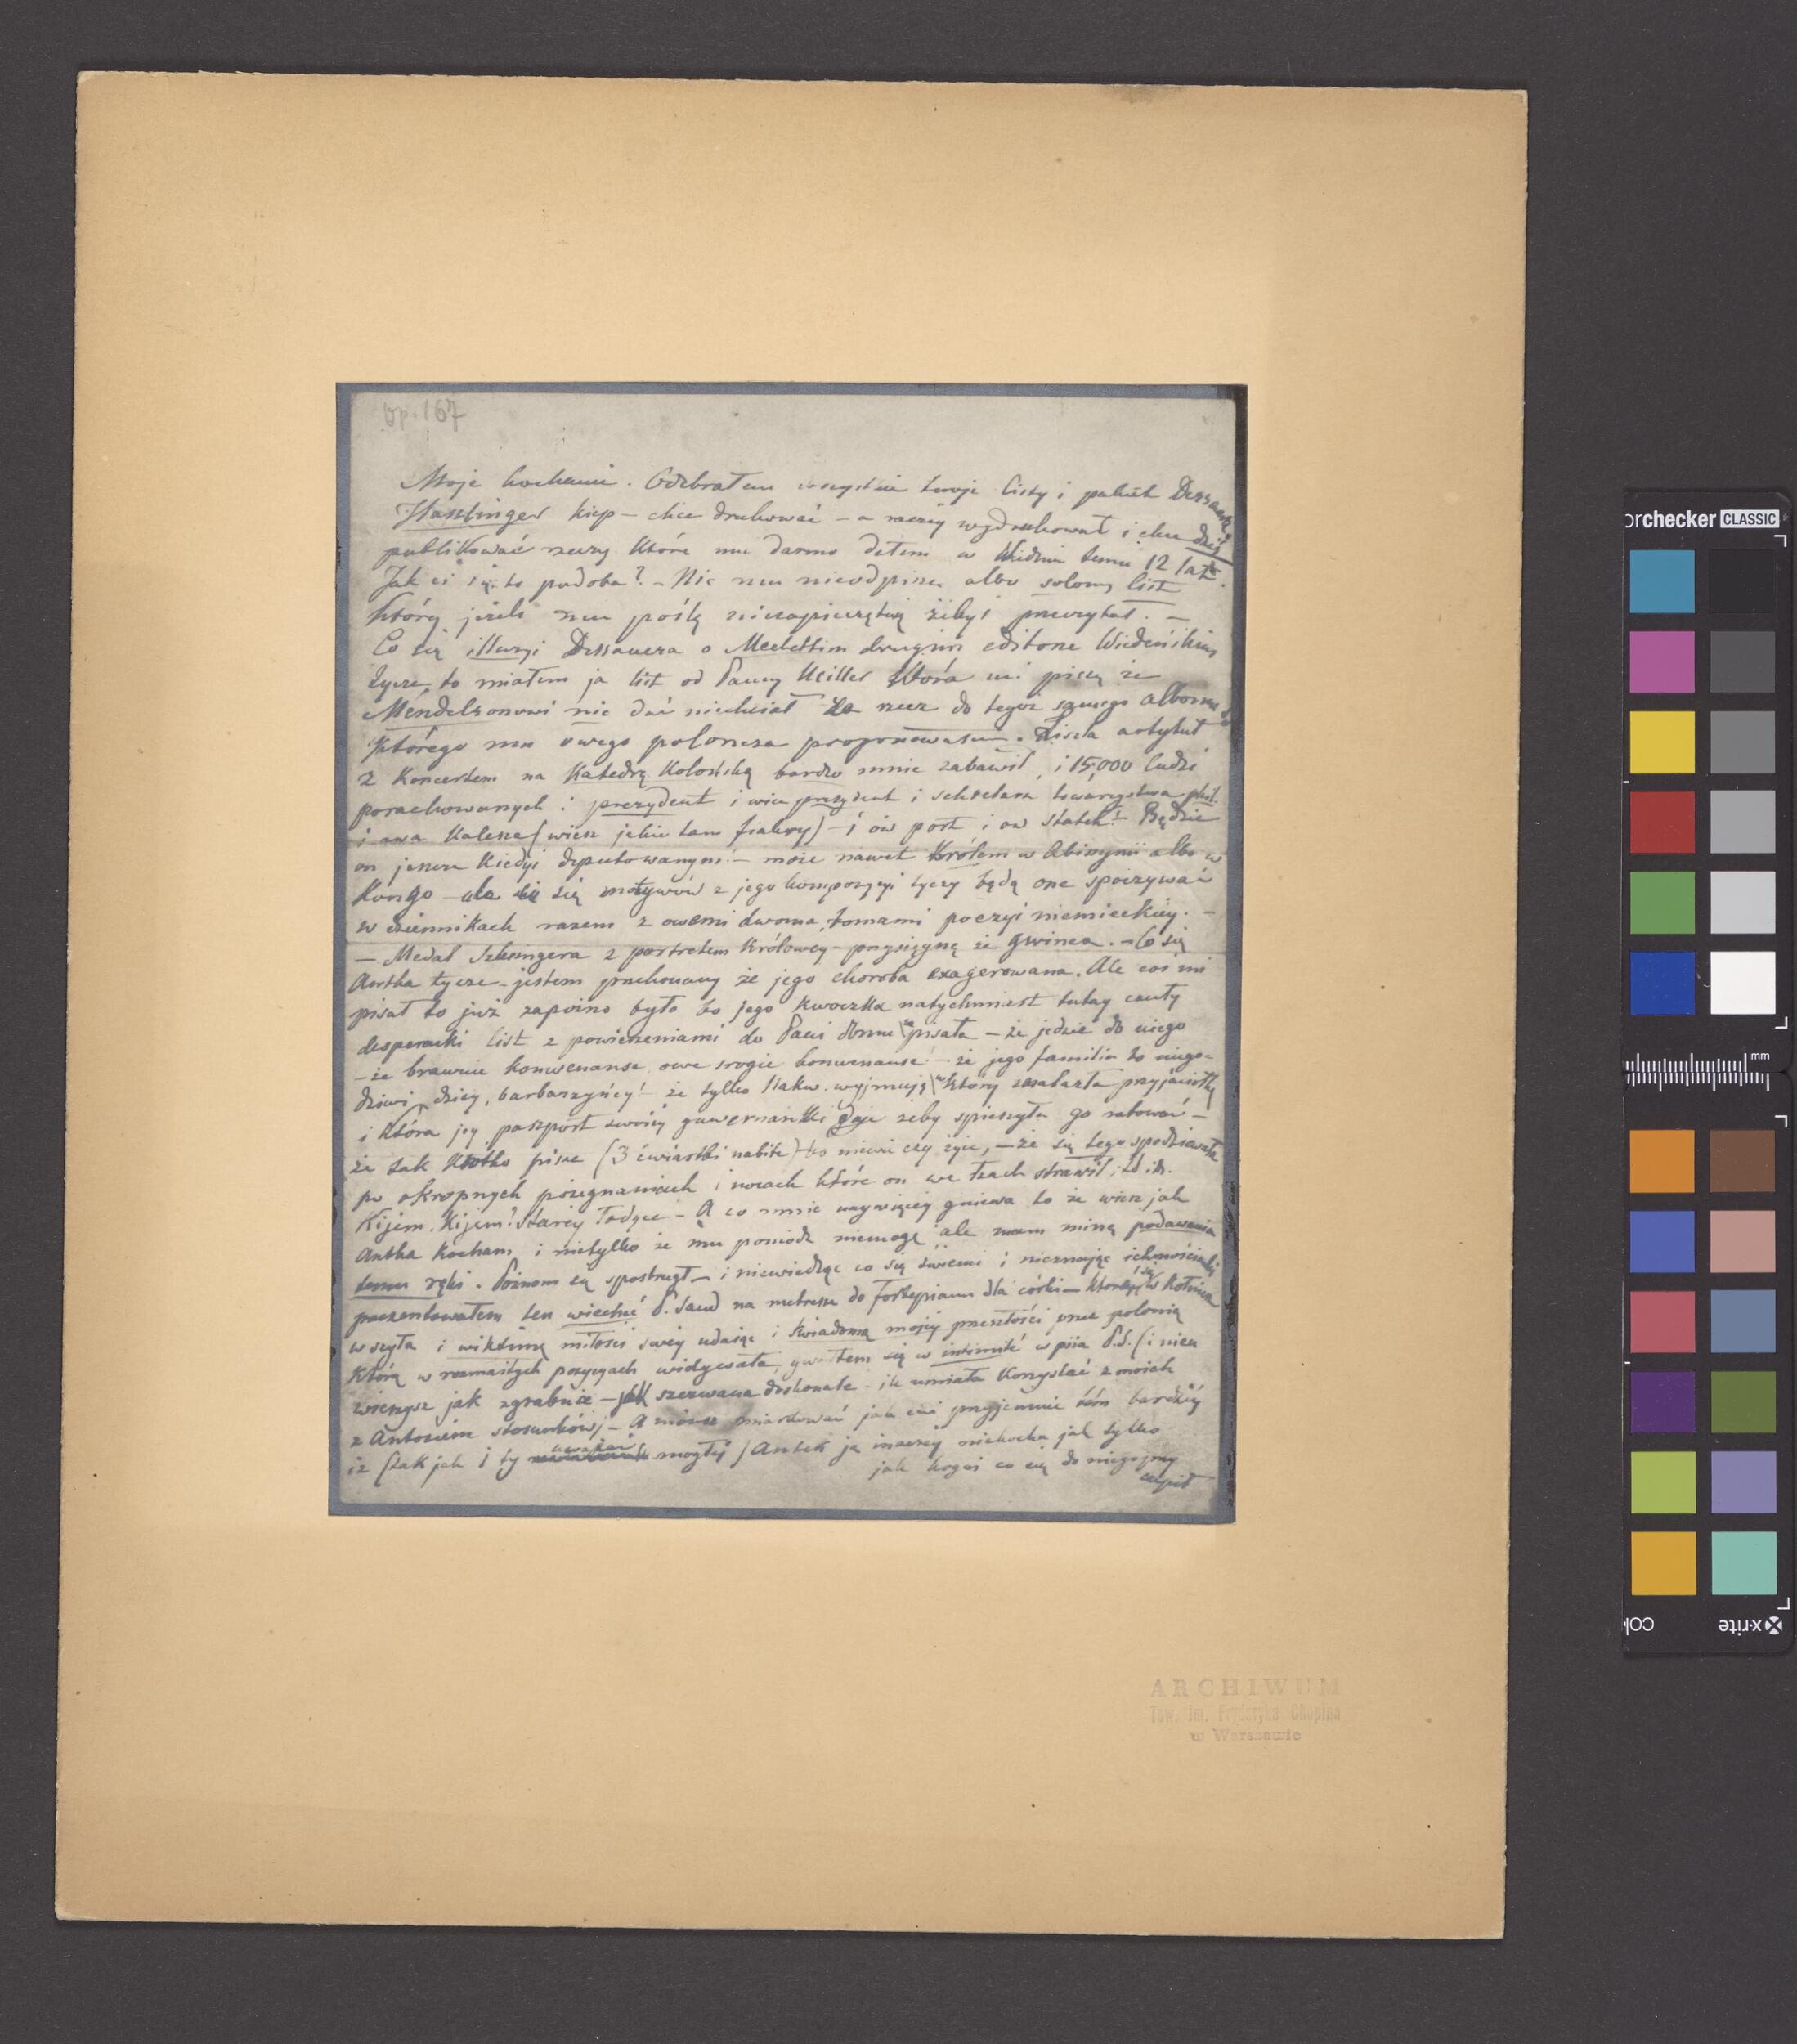 Op. 167
Moje kochanie. Odebrałem wszystkie twoje listy i pakiet Dessauera
Haslinger kiep – chce drukować – a raczej wydrukował i chce dziś
publikować rzeczy które mu darmo dałem w Widniu temu 12 lat.
Jak ci się to podoba? – Nic mu nieodpiszę albo solony list
który jeżeli mu poślę niezapieczętuję żebyś przeczytał. –
Co się illuzyi Dessauera o Mechettim drugim editorze Wiedeńskim
tycze, to miałem ja list od Panny Müller która mi piszę że
Mendelsonowi nic dać niechciał za rzecz do tegoż samego albomu do
którego mu owego poloneza proponowałem. Liszta artykuł
z koncertem na Katedrę Kolońską bardzo mnie zabawił, i 15,000 ludzi
porachowanych i prezydent i wice prezydent i sekretarz towarzystwa phil.
i owa kalesza (wiesz jakie tam fiakry) – i ów port i ow statek! Będzie
on jeszcze kiedyś deputowanym – może nawet Królem w Abisynii albo w
Kongo – ale co się motywów z jego kompozycyi tyczy będą one spoczywać
w dziennikach razem z owemi dwoma tomami poezyi niemieckiey. –
– Medal Szlesingera z portretem królowey – przysięgnę że gwinea. – Co się
Antka tycze – jestem przekonany że jego choroba exagerowana. Ale coś mi
pisał to już zapóźno było bo jego kwoczka natychmiast tutay czuły
desperacki list z powierzeniami do Pani domu napisała – że jedzie do niego
– że brawuie konwenanse, owe srogie konwenanse! – że jego familia to niego-
dziwi, dzicy, barbarzyńcy! że tylko Nakw. wyjmują w który znalazła przyjaciołkę
i która jey paszport swoiey guwernantki daje żeby spieszyła go ratować –
że tak krotko pisze (3 ćwiartki nabite) bo niewie czy żyje, – że się tego spodziewała
po okropnych pożegnaniach i nocach które on we łzach strawił, itd. itd.
Kijem, Kijem! Starey Jadzce – A co mnie naywięcey gniewa to że wiesz jak
Antka kocham i nietylko że mu pomódz niemogę ale mam minę podawania
temu ręki. Póżnom się spostrzegł – i niewiedząc co się święci i nieznając ichmościanki
prezentowałem ten wiecheć P. Sand na metresse do fortepianu dla córki –
wszyła i wiktimę miłości swey udaiąc i świadomą mojey przeszłości przez polonią
którą w rozmaitych pozycyach widywała, gwałtem się w intimité wpiia P.S. (i nieu
wierzysz jak zgrabnie – jak szczwana doskonale – ile umiała korzystać z moich
z Antosiem stosunków) – A możesz miarkować jak mi przyjemnie tém bardziey
iż (tak jak i ty uważać mogłeś) Antek ją inaczey niekocha jak tylko
jak kogoś co się do niego przy
czepił
ARCHIWUM
Tow. im. Fryderyka Chopina
w Warszawie
orchecker CLASSIC
mm
x-rite
colo